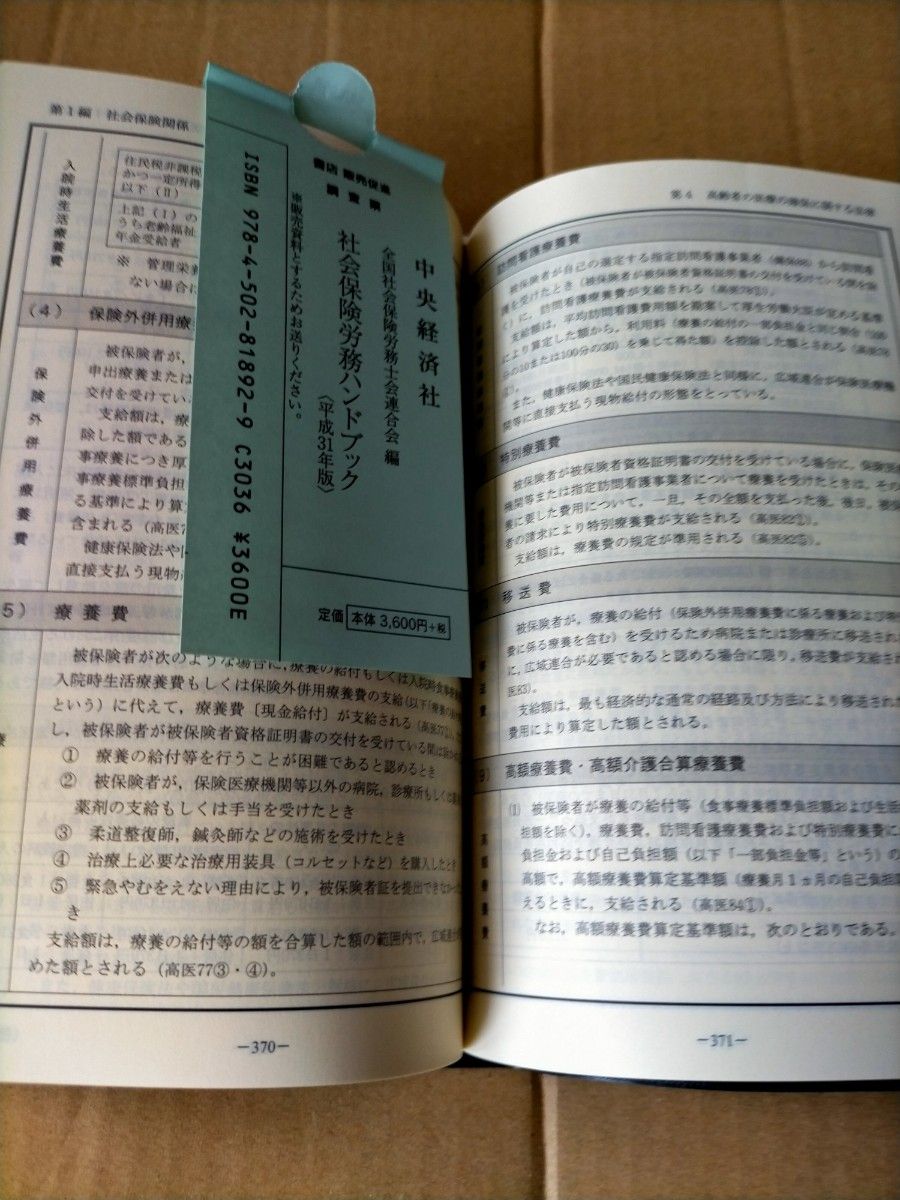 第1編 社会保険関係
入院時生活療養費
住民税非課税
かつ一定所得
以下(Ⅱ)
上記(Ⅰ)の
うち老齢福祉
年金受給者
※ 管理栄養
ない場合に
(4) 保険外併用療
保険外併用療養費
被保険者が,
申出療養または
交付を受けてい
支給額は,療
除した額である
事療養につき厚
事療養標準負担
る基準により算
含まれる(高医7
健康保険法や
直接支払う現物
5) 療養費
被保険者が次のような場合に,療養の給付もしくは入院時食事療養
入院時生活療養費もしくは保険外併用療養費の支給(以下「療養の給付
という)に代えて,療養費〔現金給付〕が支給される(高医77
し,被保険者が被保険者資格証明書の交付を受けている間は
① 療養の給付等を行うことが困難であると認めるとき
② 被保険者が,保険医療機関等以外の病院,診療所もしくは
薬剤の支給もしくは手当を受けたとき
③ 柔道整復師,鍼灸師などの施術を受けたとき
④ 治療上必要な治療用装具(コルセットなど)を購入したとき
⑤ 緊急やむをえない理由により,被保険者証を提出できなかった
き
支給額は,療養の給付等の額を合算した額の範囲内で,広域連合
めた額とされる(高医77③・④)。
—370—
書店 販売促進
調査票
中央経済社
全国社会保険労務士会連合会 編
社会保険労務ハンドブック
〈平成31年版〉
※販売資料とするためお送りください。
ISBN 978-4-502-81892-9 C3036 ¥3600E
定価 本体 3,600円+税
第4 高齢者の医療の確保に関する法律
訪問看護療養費
被保険者が自己の選定する指定訪問看護事業者(健保88)から訪問看
護を受けたとき(被保険者が被保険者資格証明書の交付を受けている間を除
く)に,訪問看護療養費が支給される(高医78①)。
支給額は,平均訪問看護費用額を勘案して厚生労働大臣が定める基準
により算定した額から,利用料(療養の給付の一部負担金と同じ割合(100
分の10または100分の30)を乗じて得た額)を控除した額とされる(高医78
また,健康保険法や国民健康保険法と同様に,広域連合が保険医療機
関等に直接支払う現物給付の形態をとっている。
特別療養費
被保険者が被保険者資格証明書の交付を受けている場合に,保険医
機関等または指定訪問看護事業者について療養を受けたときは,その
養に要した費用について,一旦,その全額を支払った後,後日,被保
者の請求により特別療養費が支給される(高医82①)。
支給額は,療養費の規定が準用される(高医82⑤)。
移送費
被保険者が,療養の給付(保険外併用療養費に係る療養および特
費に係る療養を含む)を受けるため病院または診療所に移送され
に,広域連合が必要であると認める場合に限り,移送費が支給され
医83)。
支給額は,最も経済的な通常の経路及び方法により移送された
費用により算定した額とされる。
9) 高額療養費・高額介護合算療養費
高額療養費
(1) 被保険者が療養の給付等(食事療養標準負担額および生活
担額を除く),療養費,訪問看護療養費および特別療養費に
負担金および自己負担額(以下「一部負担金等」という)の
高額で,高額療養費算定基準額(療養月1ヵ月の自己負担
えるときに,支給される(高医84①)。
なお,高額療養費算定基準額は,次のとおりである。
—371—